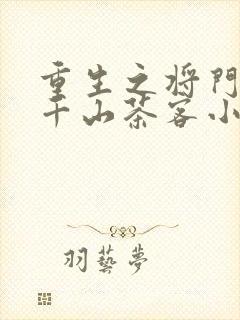 重生之将门
千山茶客小
羽藝夢